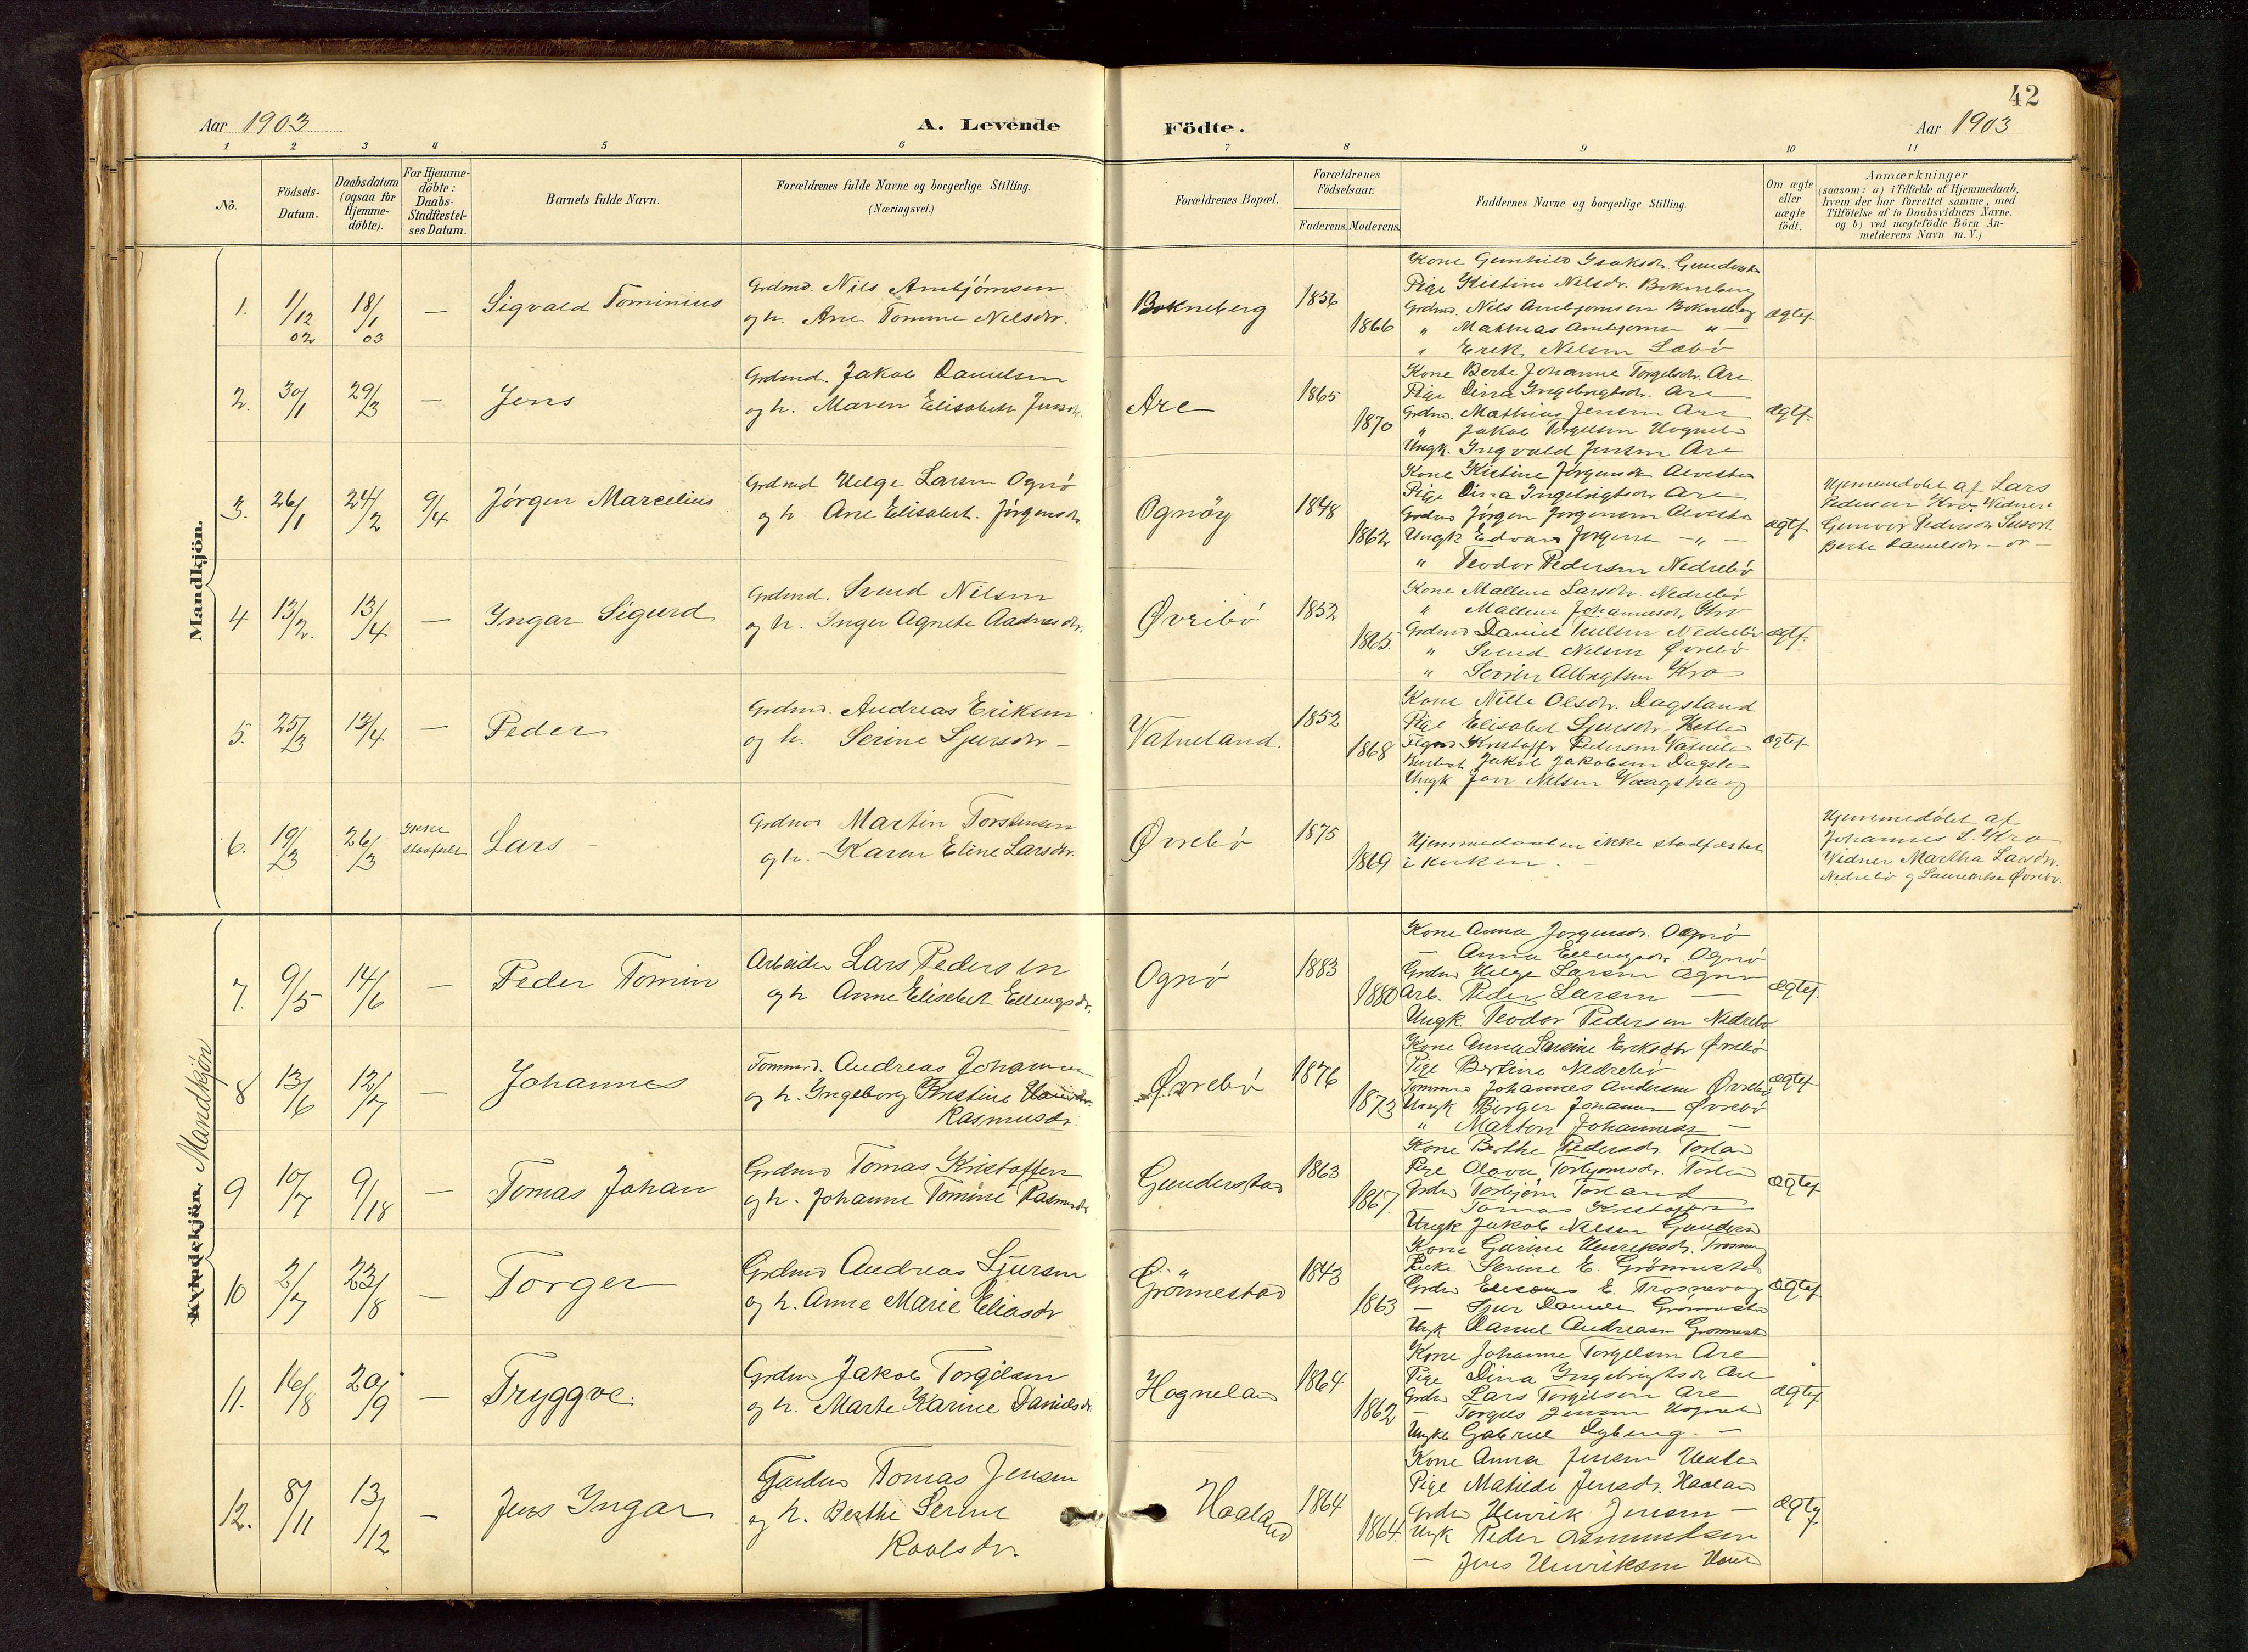 42
Aar 1903
A. Levende
Födte.
Aar 1903
1 2 3 4 5 6 7 8 9 10 11
No.
Födsels-
Datum.
Daabsdatum
(ogsaa for
Hjemme-
döbte).
For Hjemme-
döbte:
Daabs-
Stadfæstel-
ses Datum.
Barnets fulde Navn.
Forældrenes fulde Navne og borgerlige Stilling.
(Næringsvei.)
Forældrenes Bopæl.
Forældrenes
Födselsaar.
Faderens. Moderens.
Faddernes Navne og borgerlige Stilling.
Om ægte
eller
uægte
födt.
Anmærkninger
(saasom: a) i Tilfælde af Hjemmedaab,
hvem der har forrettet samme, med
Tilföielse af to Daabsvidners Navne,
og b) ved uægtefödte Börn An-
melderens Navn m. V.)
Mandkjön.
1. 1/12 02 18/1 03 — Sigvald Tominius
Grdmd. Nils Ambjörnsen
og h. Ane Tomme Nelsdtr.
Bokneberg 1856 1866
Kone Gunhild Isaksdr.
Pige Kistine Nelsdr. Bokneberg
Grdmd. Nils Ambjörnsen Bokneberg
" Mathias Ambjörnsen " —
" Erik Nelsen Læbö
ægtef
2. 30/1 29/3 — Jens
Grdmd. Jakob Danielsen
og h. Maren Elisabeth Jensdr.
Are 1865 1870
Kone Berte Johanne Torgelsdr. Are
Pige Dina Ingebregtsdr. Are
Grdmd. Mathias Jensen Are
" Jakob Torgelsen Hognela
Ungk. Ingvald Jensen Are
ægtf.
3. 26/1 24/2 9/4 Jörgen Marcelius
Grdmd Helge Larsen Ognö
og h Ane Elisabeth Jörgensdr
Ognöy 1848 1862
Kone Kistine Jörgensdr. Alvesta
Pige Dina Ingebrigtsdr Are
Grdmd Jörgen Jörgensen Alvesta
Ungk Edvard Jörgens — " —
" Teodor Pedersen Nedrebö
ægtf
Hjemmedöbt af Lars
Pedersen Kro, Vidner:
Gunvor Pedersdr
Berte Danielsdr — " —
4 13/2. 13/4 — Ingar Sigurd
Grdmd. Svend Nilsen
og h. Inger Agnete Aadnesdr.
Øvrebö 1852 1865.
Kone Mallene Larsdr. Nedrebö
" Mallene Johannesdr. Kro
Grdmd Daniel Nedrebö
" Svend Nelsen Øvrebö
" Sevrin Albregtsen Kro
ægtf.
5. 25/3 13/4 — Peder
Grdmd. Andreas Eriksen
og h. Serine Sjursdr —
Vatneland. 1852 1868
Kone Nille Olsdr. Dagsland
Pige Elisabet Sjursdr. Hetle
Kristoffer Pedersen Vatnela
Jakob Jakobsen Dagsla
Ungk Jon Nelsen Vaagshaug
ægtef
6. 19/3 26/3 Ikke Lars —
Grdmd Martin Torstensen
og h. Karen Eline Larsdr.
Øvrebö 1875 1869
Hjemmedaaben ikke stadfæstet
i Kirken. —
Hjemmedöbt af
Johannes L. Kro
Vidner Martha Larsdr.
Nedrebö og Øvrebö.
Kvindekjön. Mandkjön
7. 9/5 14/6 — Peder Tomin
Arbeider Lars Pedersen
og h Anne Elisebet Ellingsdr.
Ognö 1883 1880
Kone Anna Jörgensdr. Ognö
— Anna Ellingsdr. Ognö
Grdmd Helge Larsen Ognö
Arb. Peder Larsen —
Ungk. Teodor Pedersen Nedrebö
ægtef.
8 13/6 12/7 — Johannes
Tommd. Andreas Johannsen
og h. Ingeborg Kristine
Rasmusdr.
Øvrebö 1876 1873
Kone Anna Larsine Eriksdtr Øvrebö
Pige Bertine Nedrebö
Tommd Johannes Andersen Øvrebö
Ungk Börger Johannsen Øvrebö
" Marton Johannesen —
ægtef
9 10/7 9/18 — Tomas Johan
Grdmd Tomas Kristoffersen
og h. Johanne Tomine Rasmusdr
Gunderstad 1863 1867.
Kone Berthe Pedersdr. Torland
Pige Olava Torbjörnsdr. Torla
Grdmd Torbjörn Torland
Tomas Kristoffersen
Ungk Jakob Nelsen Gunders
ægtef
10 2/7 23/8 — Torger
Grdmd Andreas Sjursen
og h. Anne Marie Eliasdr
Grönnestad 1843 1863
Kone Gurine Henriksdr.
Serine E. Grönnestad
Grdmd E. Trosnavag
— Sjur Daniels Grönnestad
Ungk Daniel Andreasen Grönnest
ægtef
11. 16/8 20/9 — Tryggve.
Grdmd Jakob Torgilsen
og h. Marte Karine Danielsdr.
Hognelan 1864 1862
Kone Johanne Torgelsen Are
Pige Dina Ingebrigtsdr Are
Grdmd Lars Torgilsen Are
— Torgils Jensen Hognela
Ungk Gabriel Dyberg. —
ægtef
12. 8/11 13/12 — Jens Ingar
Gardmd Tomas Jensen
og h. Berthe Serine
Roalsdr.
Haaland 1864 1864.
Kone Anna Jensen
Pige Matilde Jensdr. Haalan
Grdmd Henrik Jensen —
Ungk Peder Asmundsen
— Jens Henriksen
ægtef